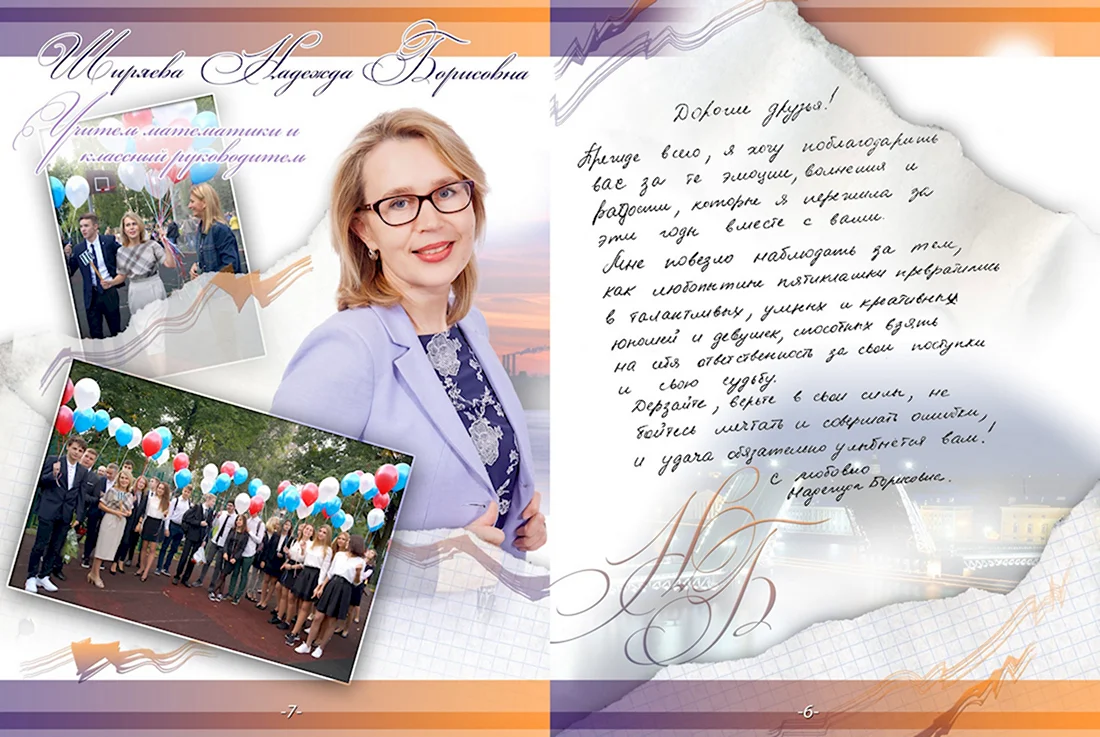 Ширяева Надежда Борисовна
Учитель математики и
классный руководитель
-7-
Дорогие друзья!
Прежде всего, я хочу поблагодарить
вас за те эмоции, волнения и
радости, которые я пережила за
эти годы вместе с вами.
Мне повезло наблюдать за тем,
как любопытные пятиклашки превратились
в талантливых, умных и креативных
юношей и девушек, способных взять
на себя ответственность за свои поступки
и свою судьбу.
Дерзайте, верьте в свои силы, не
бойтесь мечтать и совершать ошибки,
и удача обязательно улыбнётся вам!
С любовью
Надежда Борисовна.
НБ
-6-